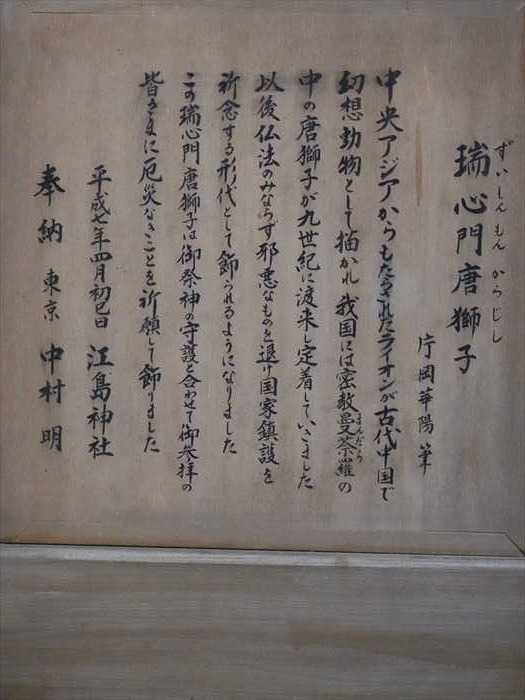 ずいしんもん からじし
瑞心門唐獅子
片岡華陽筆
中央アジアからもたらされたライオンが古代中国で
幻想動物として描かれ我国には密教曼荼羅の
まんだら
中の唐獅子が九世紀に渡来し定着していきました
以後仏法のみならず邪悪なものを退け国家鎮護を
祈念する形代として飾られるようになりました
この瑞心門唐獅子は御祭神の守護と合わせて御参拝の
皆さまに厄災なきことを祈願して飾りました
平成七年四月初巳日 江島神社
奉納 東京 中村明